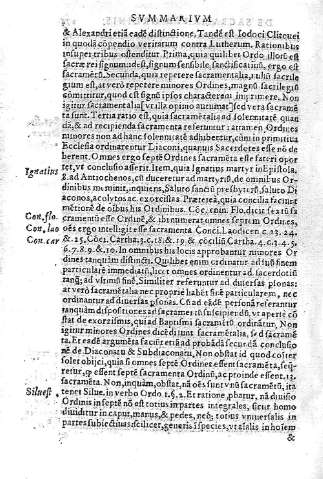 SVMMARIVM
& Alexandri etiã eadẽ distinctione. Tandẽ est Iodoci Clitouei
in quodã cõpendio veritatum contra Lutherum. Rationibus
insuper tribus ostenditur. Prima, quia quilibet Ordo illorũ est
sacræ rei signum: idest, signum sensibile, sanctificatiuũ. ergo est
sacramẽtũ. Secunda, quia repetere sacramentalia, nullũ sacrile
gium est, at verò repetere minores Ordines, magnũ sacrilegiũ
cõmittitur, quod est signũ ipsos characterem imprimere. Non
igitur sacramentalia[ vt illa opinio autumat] sed vera sacramẽ
ta sunt. Tertia ratio est, quia sacramentalia ad solemnitatẽ quan
dã, & ad recipienda sacramenta referuntur: at tamen, Ordines
minores non ad hanc solemnitatẽ adhibentur, cùm in primitiua
Ecclesia ordinarentur Diaconi, quanuis Sacerdotes esse nõ de
berent. Omnes ergo septẽ Ordines sacramẽta esse fateri opor
Ignatius
tet, vt conclusio asserit. Item, quia Ignatius martyr in Epistola.
8. ad Antiochenos, cũ duceretur ad martyriũ, de omnibus Or
dinibus meminit, inquiens, Saluto sanctũ presbyteriũ, saluto Di
aconos, acolytos ac exorcistas. Præterea, quia concilia faciunt
mẽtionẽ de oĩbus his Ordinibus. Cõc. enim. Flo. dicit sex tũ sa
Con. flo.
cramentũ esse Ordinẽ, & in vniuersum omnes septẽ Ordines,
Con. lao
eos ergo intelligit esse sacramenta Conci. Laodicen. c. 23. 24.
Con. car
& .25. Cõci. Cartha. 3. c. 18. & .19. & cõciliũ Cartha. 4. c. 3. 4. 5.
6. 7. 8. 9. &. 10. In omnibus his locis approbantur minores Or
dines tanquàm distincti. Quilibet enim ordinatur ad suũ finem
particularẽ immediatũ, licet omnes ordinentur ad sacerdotiũ
tanquàm ad vltimũ finẽ. Similiter referuntur ad diuersas personas:
at verò sacramẽtalia nec propriè habẽt finẽ particularem, nec
ordinantur ad diuersas personas. Cũ ad eãdẽ personã referantur
tanquàm dispositiones ad sacramẽtũ suscipiendũ, vt apparẽt cõ
stat de exorcismis, quia ad Baptismi sacramẽtũ ordinãtur. Non
igitur minores Ordines dicẽdi sunt sacramẽtalia, sed sacramẽ
ta. Et eadẽ argumẽta faciũt etiã ad probãdã secundã conclusio
nẽ de Diaconatu & Subdiaconatu. Non obstat id quod cõster
solet obijci, quia si omnes septẽ Ordines essent sacramẽta, seq̃
retur, qꝫ essent septẽ sacramenta Ordinũ, ac proinde essent. 13.
sacramẽta. Non, inquàm, obstat, nã oẽs sunt vnũ sacramẽtũ, ita
Siluest
tenet Silue. in verbo Ordo. 1. §. 2. Et ratione, phatur, nã diuisio
Ordinis in septẽ nõ est totius in partes integrales, sicut homo
diuiditur in caput, manus, & pedes, nec, totius vniuersalis in
partes subiectiuas scilicet, generis in species, vt aĩalis in hoĩem
&